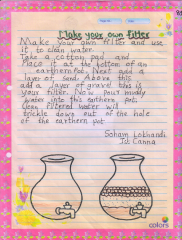 Make your own filter
Make your own filter and use
it to clean water.
Take a cotton pad and
Place it at the bottom of an
earthen pot. Next add a
layer of sand. Above this
add a layer of gravel this is
your filter. Now pour muddy
water into this earthen pot.
Clean filtered water will
trickle down out of the hole
of the earthern pot
Soham Lokhandi
Jd: Canna
colors